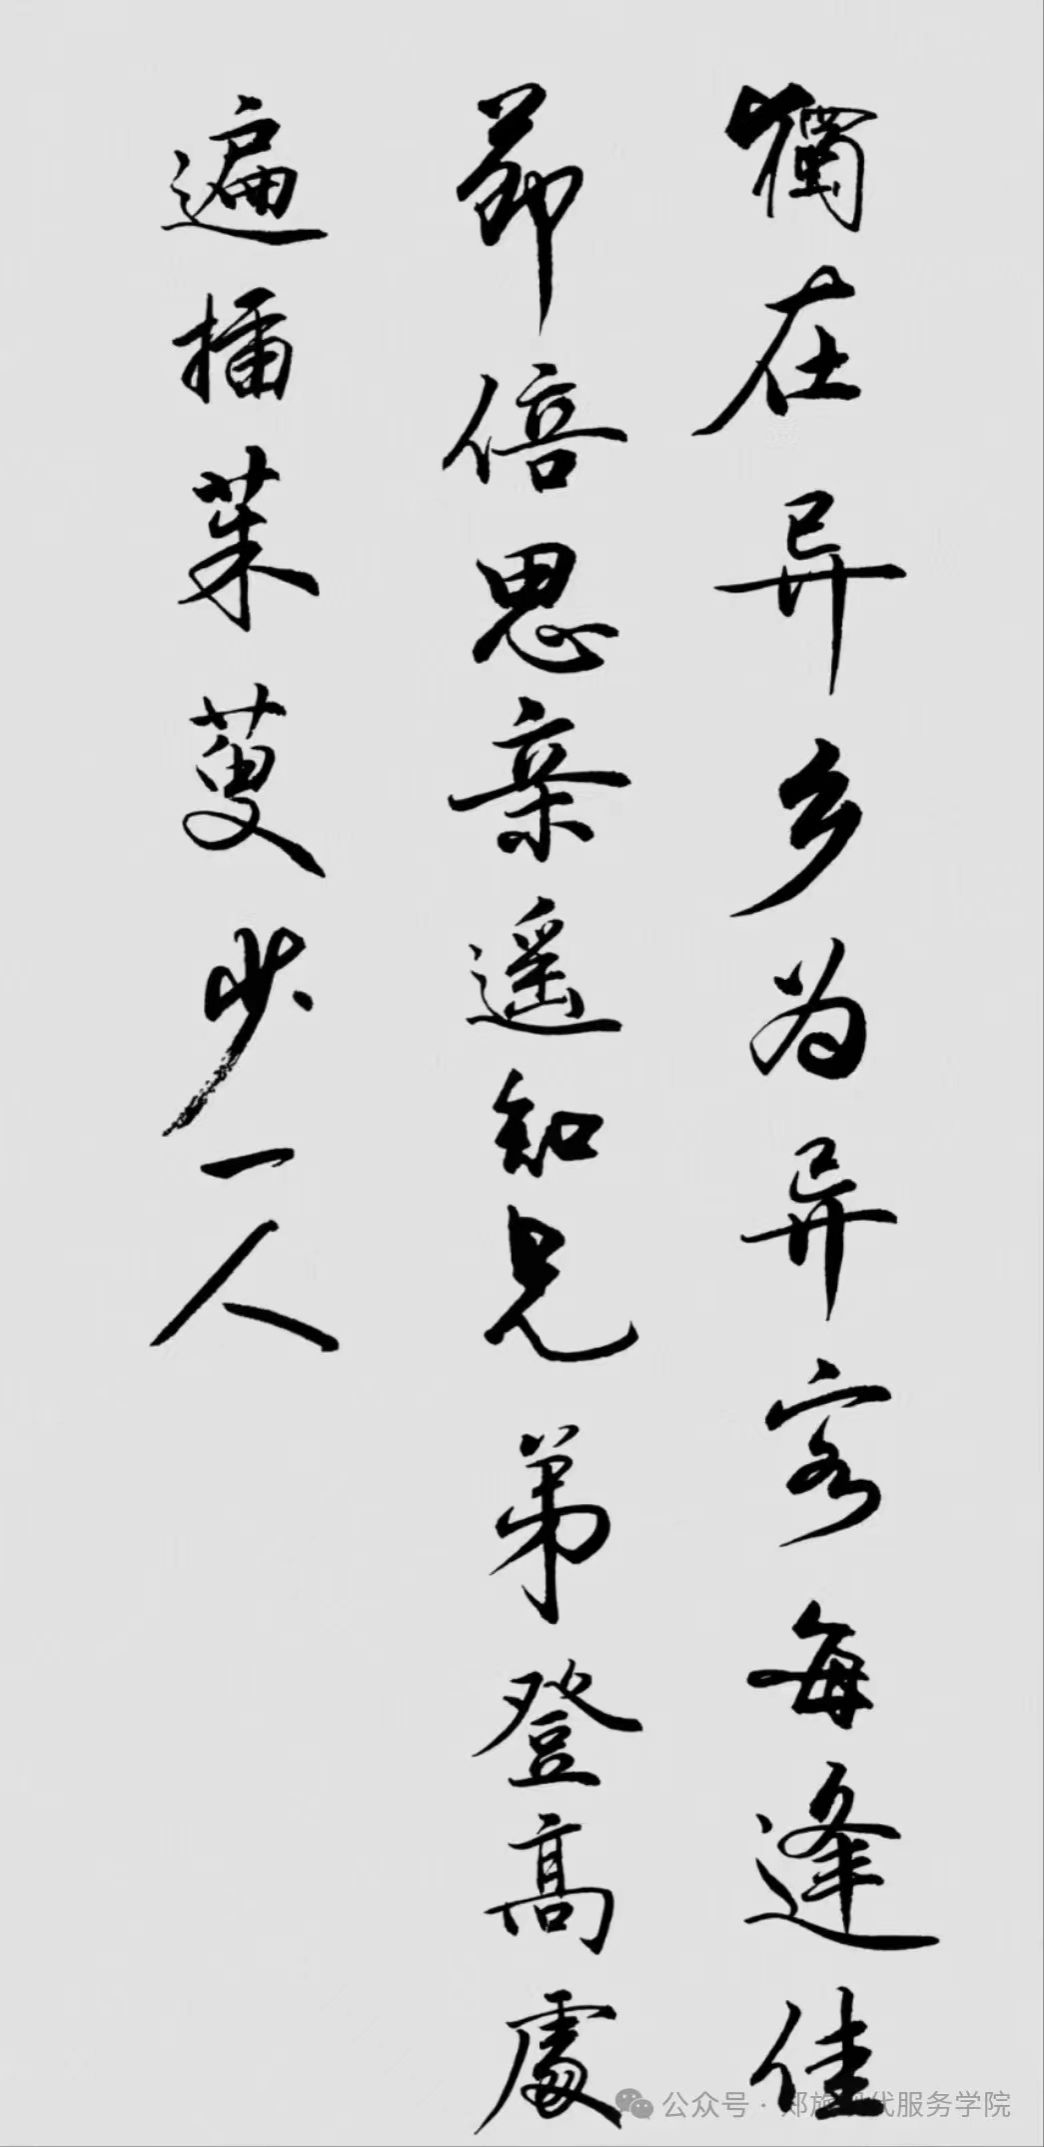 獨在异乡为异客每逢佳
節倍思亲遥知兄弟登高處
遍插茱萸少一人
公众号·郑旅现代服务学院